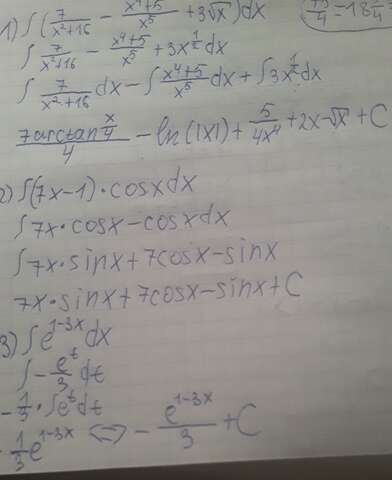 1) ∫(7/(x²+16) - (x⁴+5)/x⁵ + 3√x)dx
∫ 7/(x²+16) - (x⁴+5)/x⁵ + 3x^(1/2) dx
∫ 7/(x²+16) dx - ∫ (x⁴+5)/x⁵ dx + ∫ 3x^(1/2) dx
(7arctan x/4)/4 - ln(|x|) + 5/(4x⁴) + 2x·√x + C
2) ∫(7x-1)·cosxdx
∫7x·cosx-cosxdx
∫7x·sinx+7cosx-sinx
7x·sinx+7cosx-sinx+C
3) ∫e^(1-3x)dx
∫ - e^t/3 dt
-1/3·∫e^t dt
-1/3 e^(1-3x) <=> - e^(1-3x)/3 + C